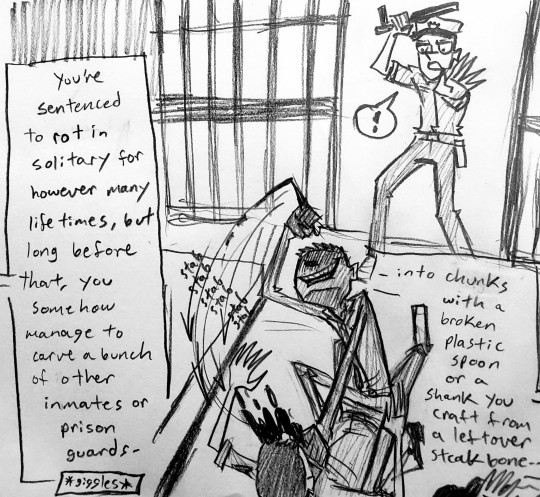 You're
sentenced
to rot in
solitary for
however many
lifetimes, but
long before
that, you
somehow
manage to
carve a bunch
of other
inmates or
prison
guards-
*giggles*
!
stab
stab
stab
stab
stab
stab
- into chunks
with a
broken
plastic
spoon
or a
shank you
craft from
a leftover
steak bone--